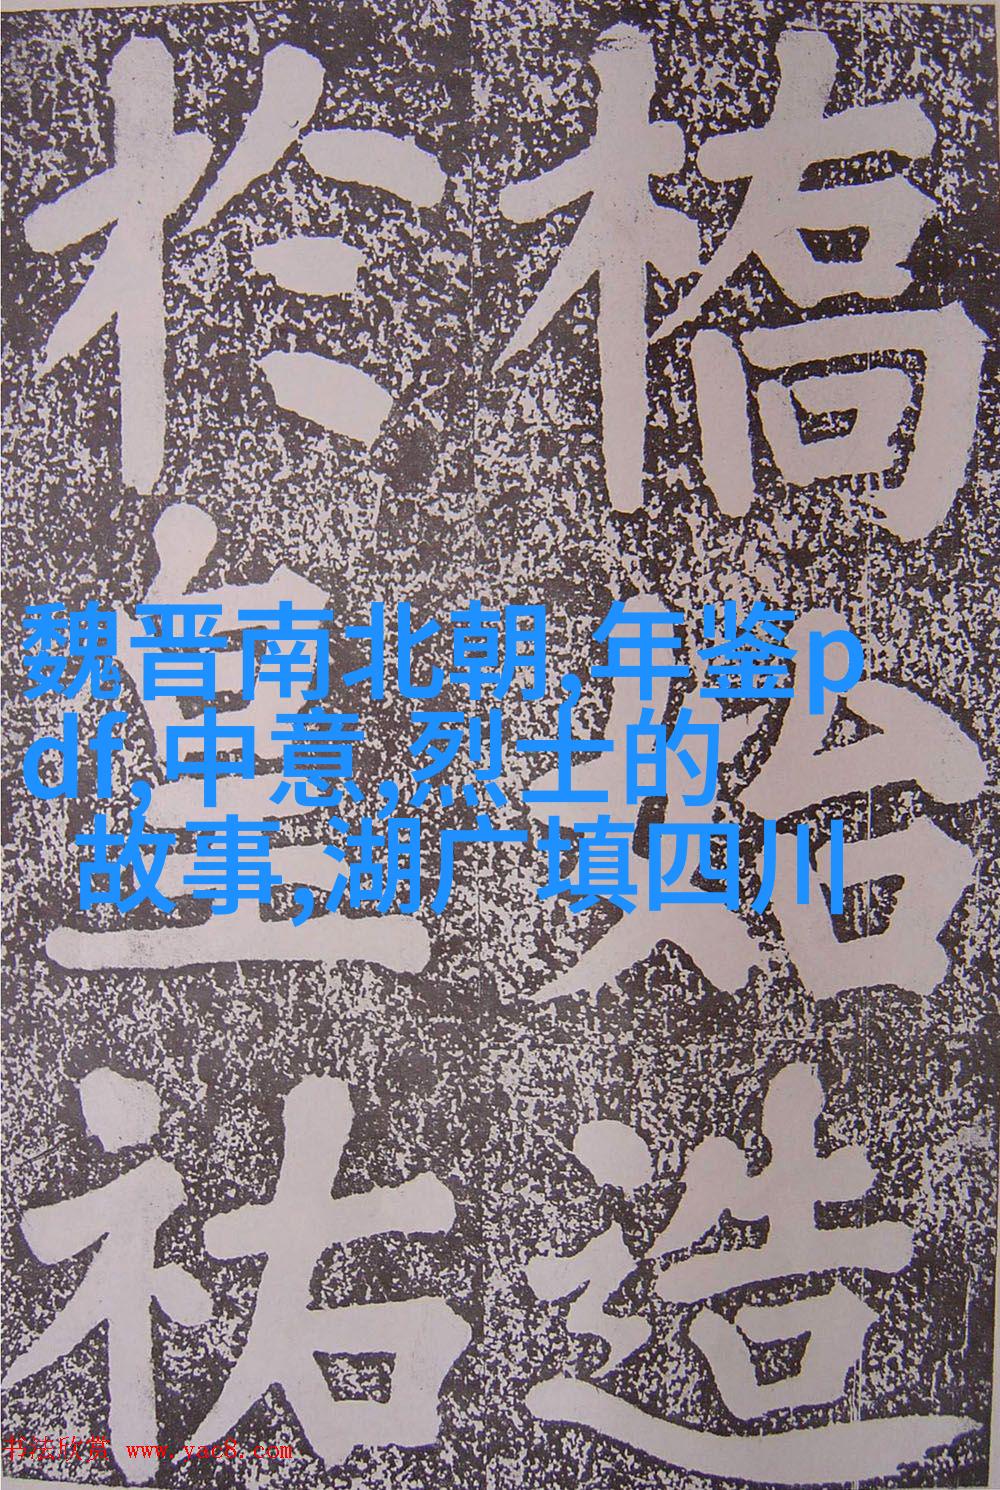 橋始造
於皇祐
魏晋南北朝,年鉴p
df,中意,烈士的
故事,湖广填四川
书法欣赏 www.yac8.com